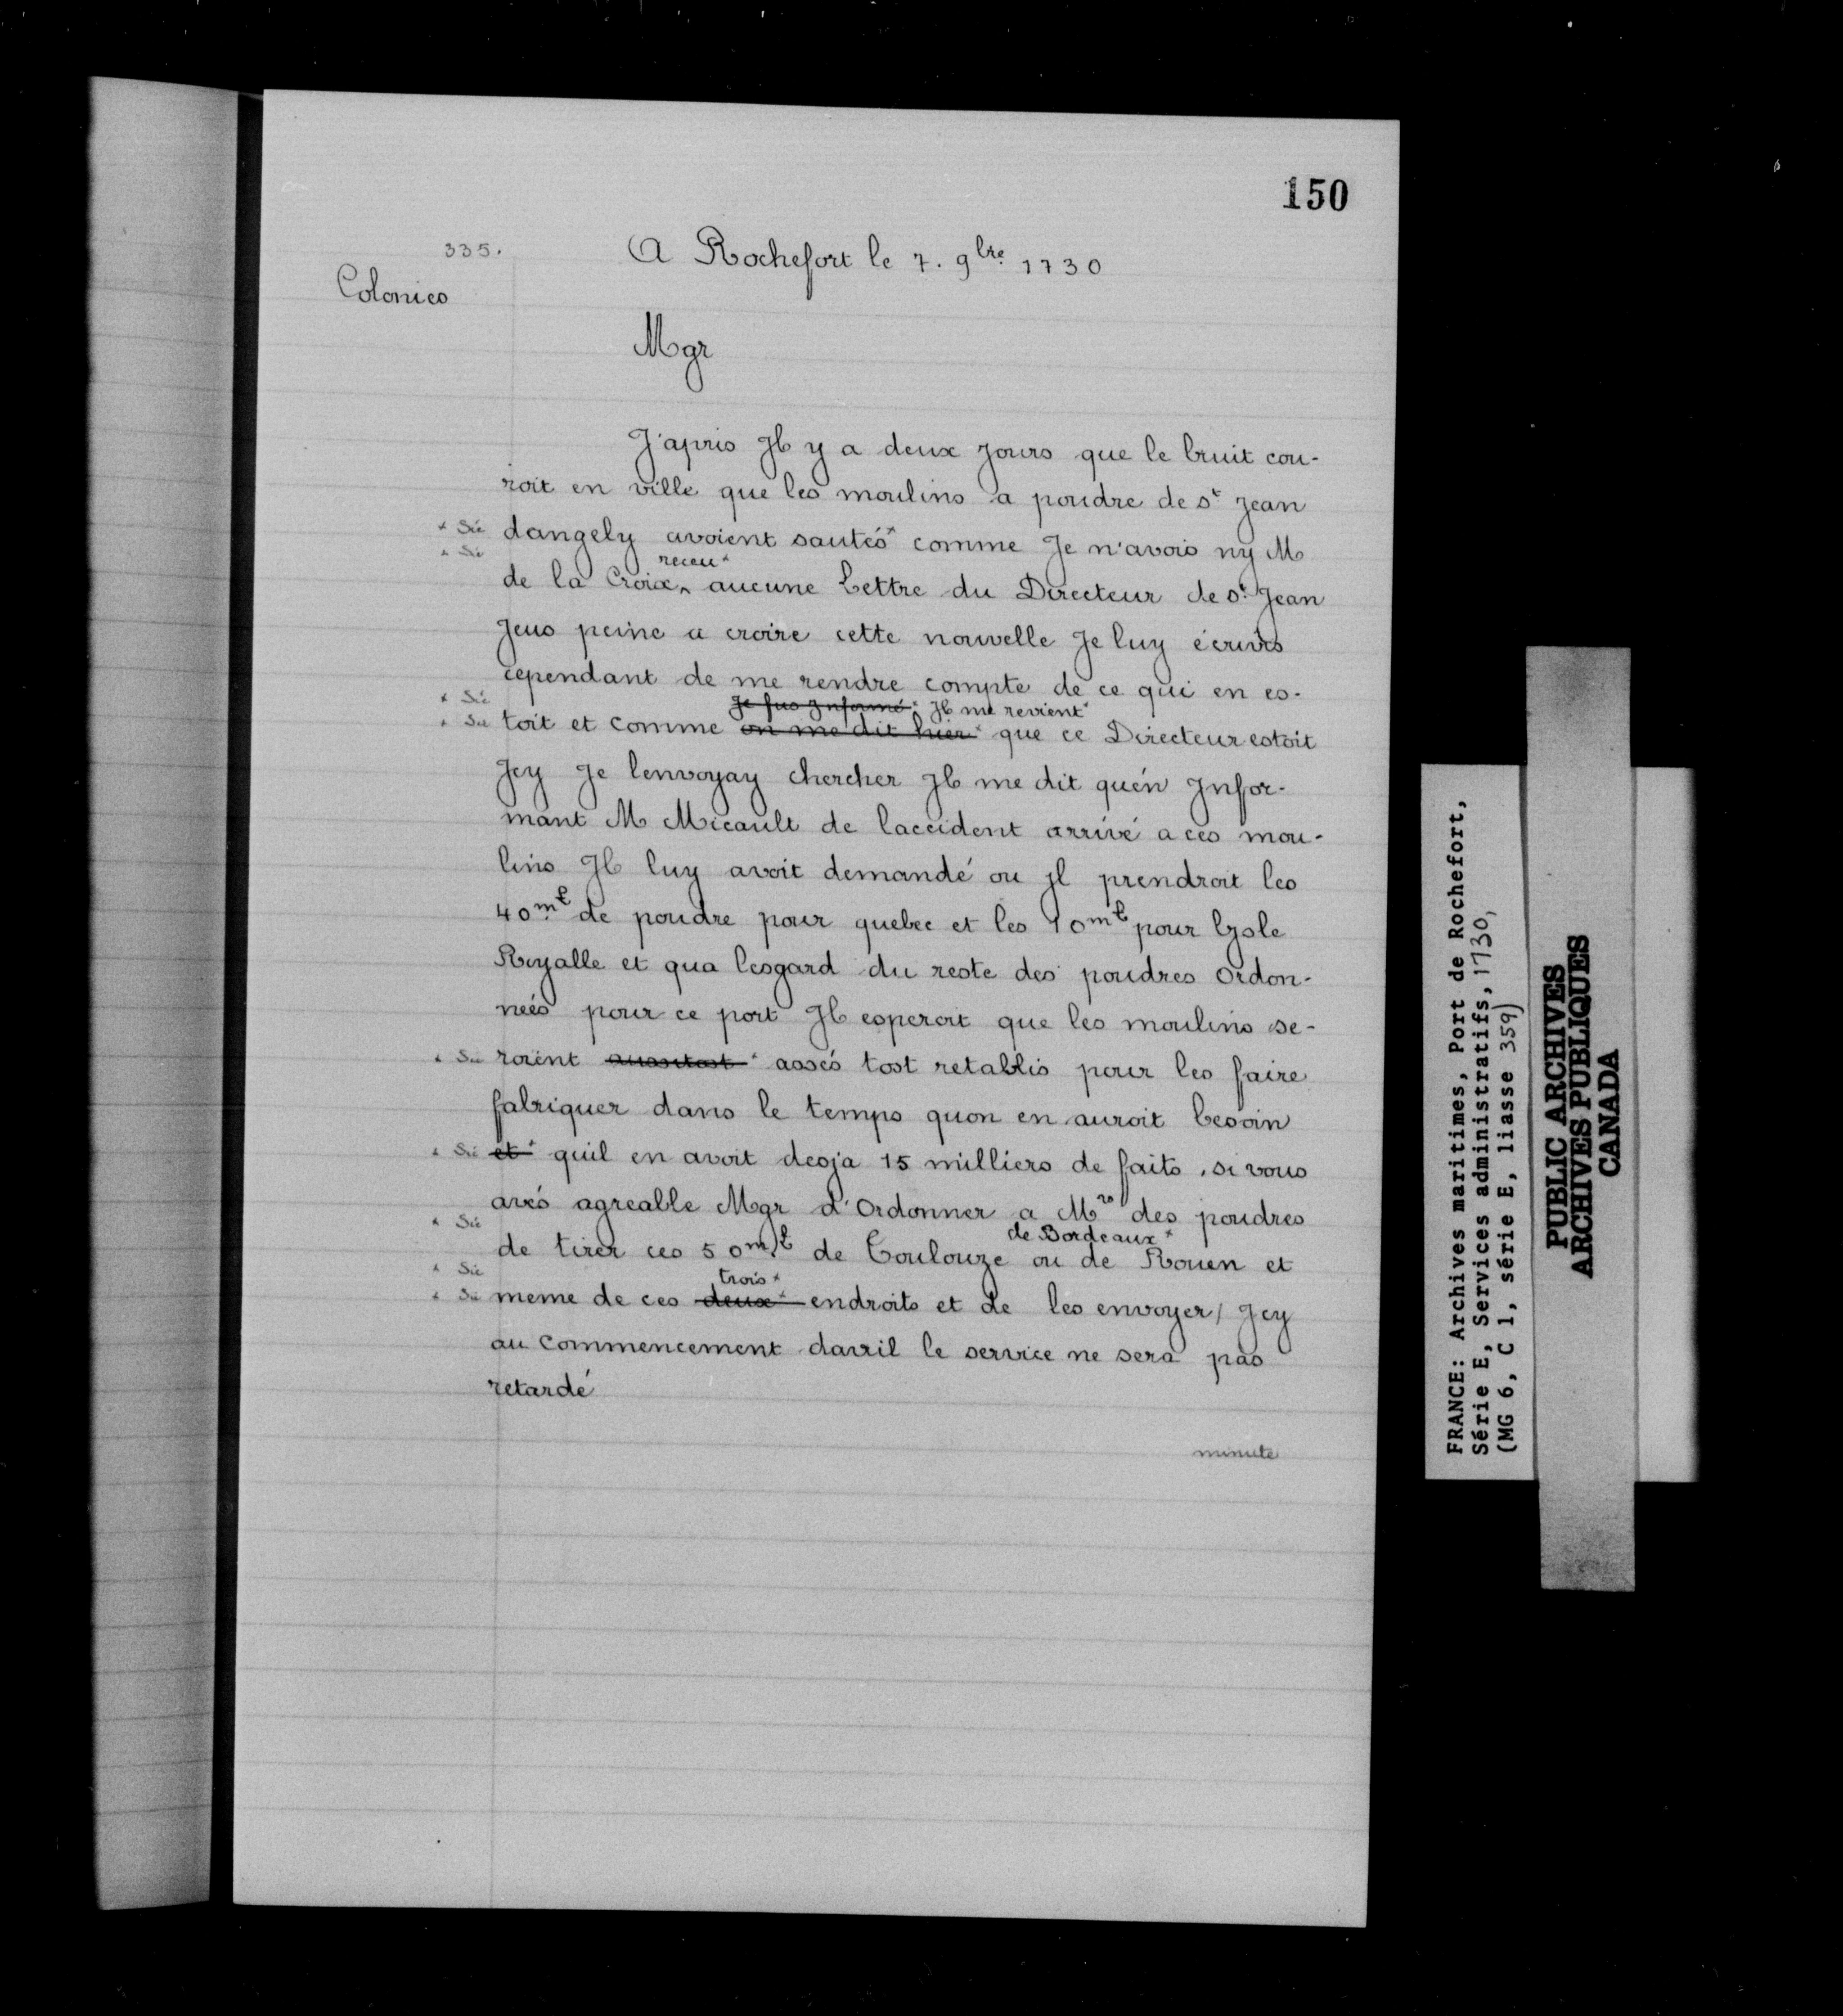 150
335.
A Rochefort le 7. 9bre 1730
Colonies
Mgr
J'apris Il y a deux jours que le bruit cou-
roit en ville que les moulins a poudre de St Jean
* Sic dangely avoient sautés* comme Je n'avois ny M
* Sic
receu*
de la Croix ^ aucune Lettre du Directeur de St Jean
Jeus peine a croire cette nouvelle Je luy écrivis
cependant de me rendre compte de ce qui en es-
* Sic
Je fus Informé* Il me revient*
* Sic toit et comme on me dit hier* que ce Directeur estoit
Jcy Je lenvoyay chercher Il me dit qu'en Infor-
mant M Micault de laccident arrivé a ces mou-
lins Il luy avoit demandé ou Il prendroit les
40mt de poudre pour quebec et les 10mt pour lzsle
Royalle et qua lesgard du reste des poudres ordon-
neés pour ce port Il esperoit que les moulins se-
* Sic roient aussitost* assés tost retablis pour les faire
fabriquer dans le temps quon en auroit besoin
* Sic et* quil en avoit desja 15 milliers de faits, si vous
avés agreable Mgr d'Ordonner a Mrs des poudres
* Sic
de Bordeaux*
de tirer ces 50mt de Toulouze ou de Rouen et
* Sic
trois*
* Sic meme de ces deux* endroits et de les envoyer / Jcy
au Commencement davril le service ne sera pas
retardé
minute
FRANCE: Archives maritimes, Port de Rochefort,
Série E, Services administratifs, 1730,
(MG 6, C 1, série E, liasse 359)
PUBLIC ARCHIVES
ARCHIVES PUBLIQUES
CANADA